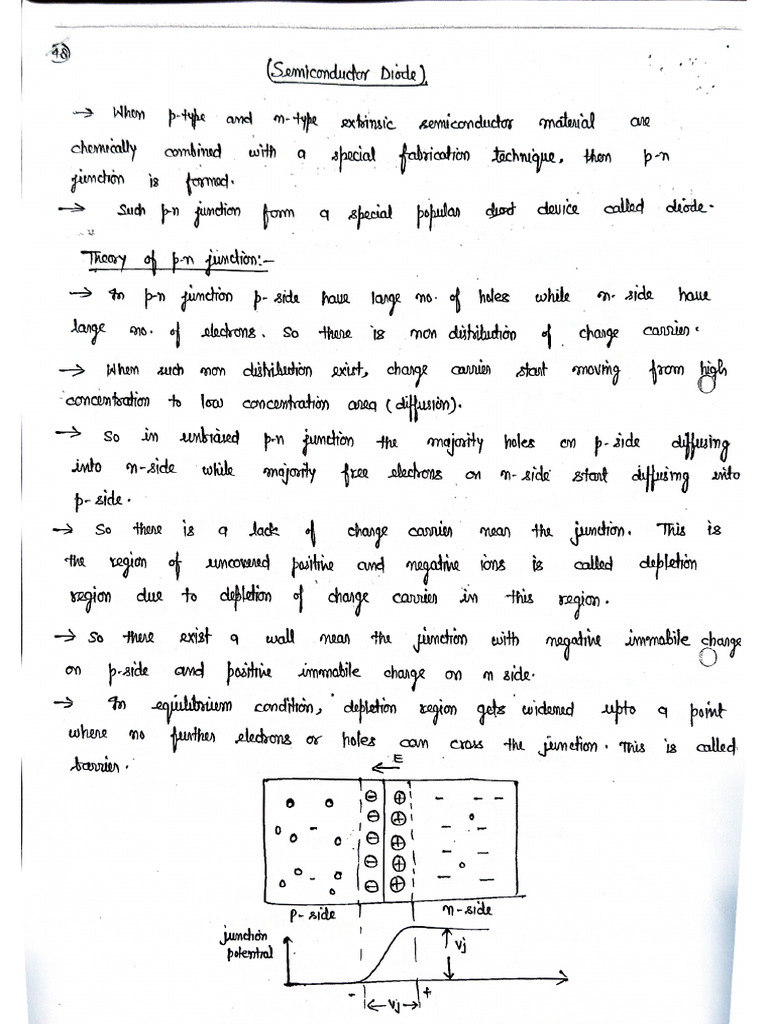 48
(Semiconductor Diode)
→ When p-type and n-type extrinsic semiconductor material are
chemically combined with a special fabrication technique, then p-n
junction is formed.
→ Such p-n junction form a special popular device called diode.
Theory of p-n junction:-
→ In p-n junction p-side have large no. of holes while n-side have
large no. of electrons. So there is non distribution of charge carrier.
→ When such non distribution exist, charge carrier start moving from high
concentration to low concentration area (diffusion).
→ So in unbiased p-n junction the majority holes on p-side diffusing
into n-side while majority free electrons on n-side start diffusing into
p-side.
→ So there is a lack of charge carrier near the junction. This is
the region of uncovered positive and negative ions is called depletion
region due to depletion of charge carrier in this region.
→ So there exist a wall near the junction with negative immobile charge
on p-side and positive immobile charge on n side.
→ In equilibrium condition, depletion region gets widened upto a point
where no further electrons or holes can cross the junction. This is called
barrier.
E
p-side n-side
junction
potential
Vj
- Vj +